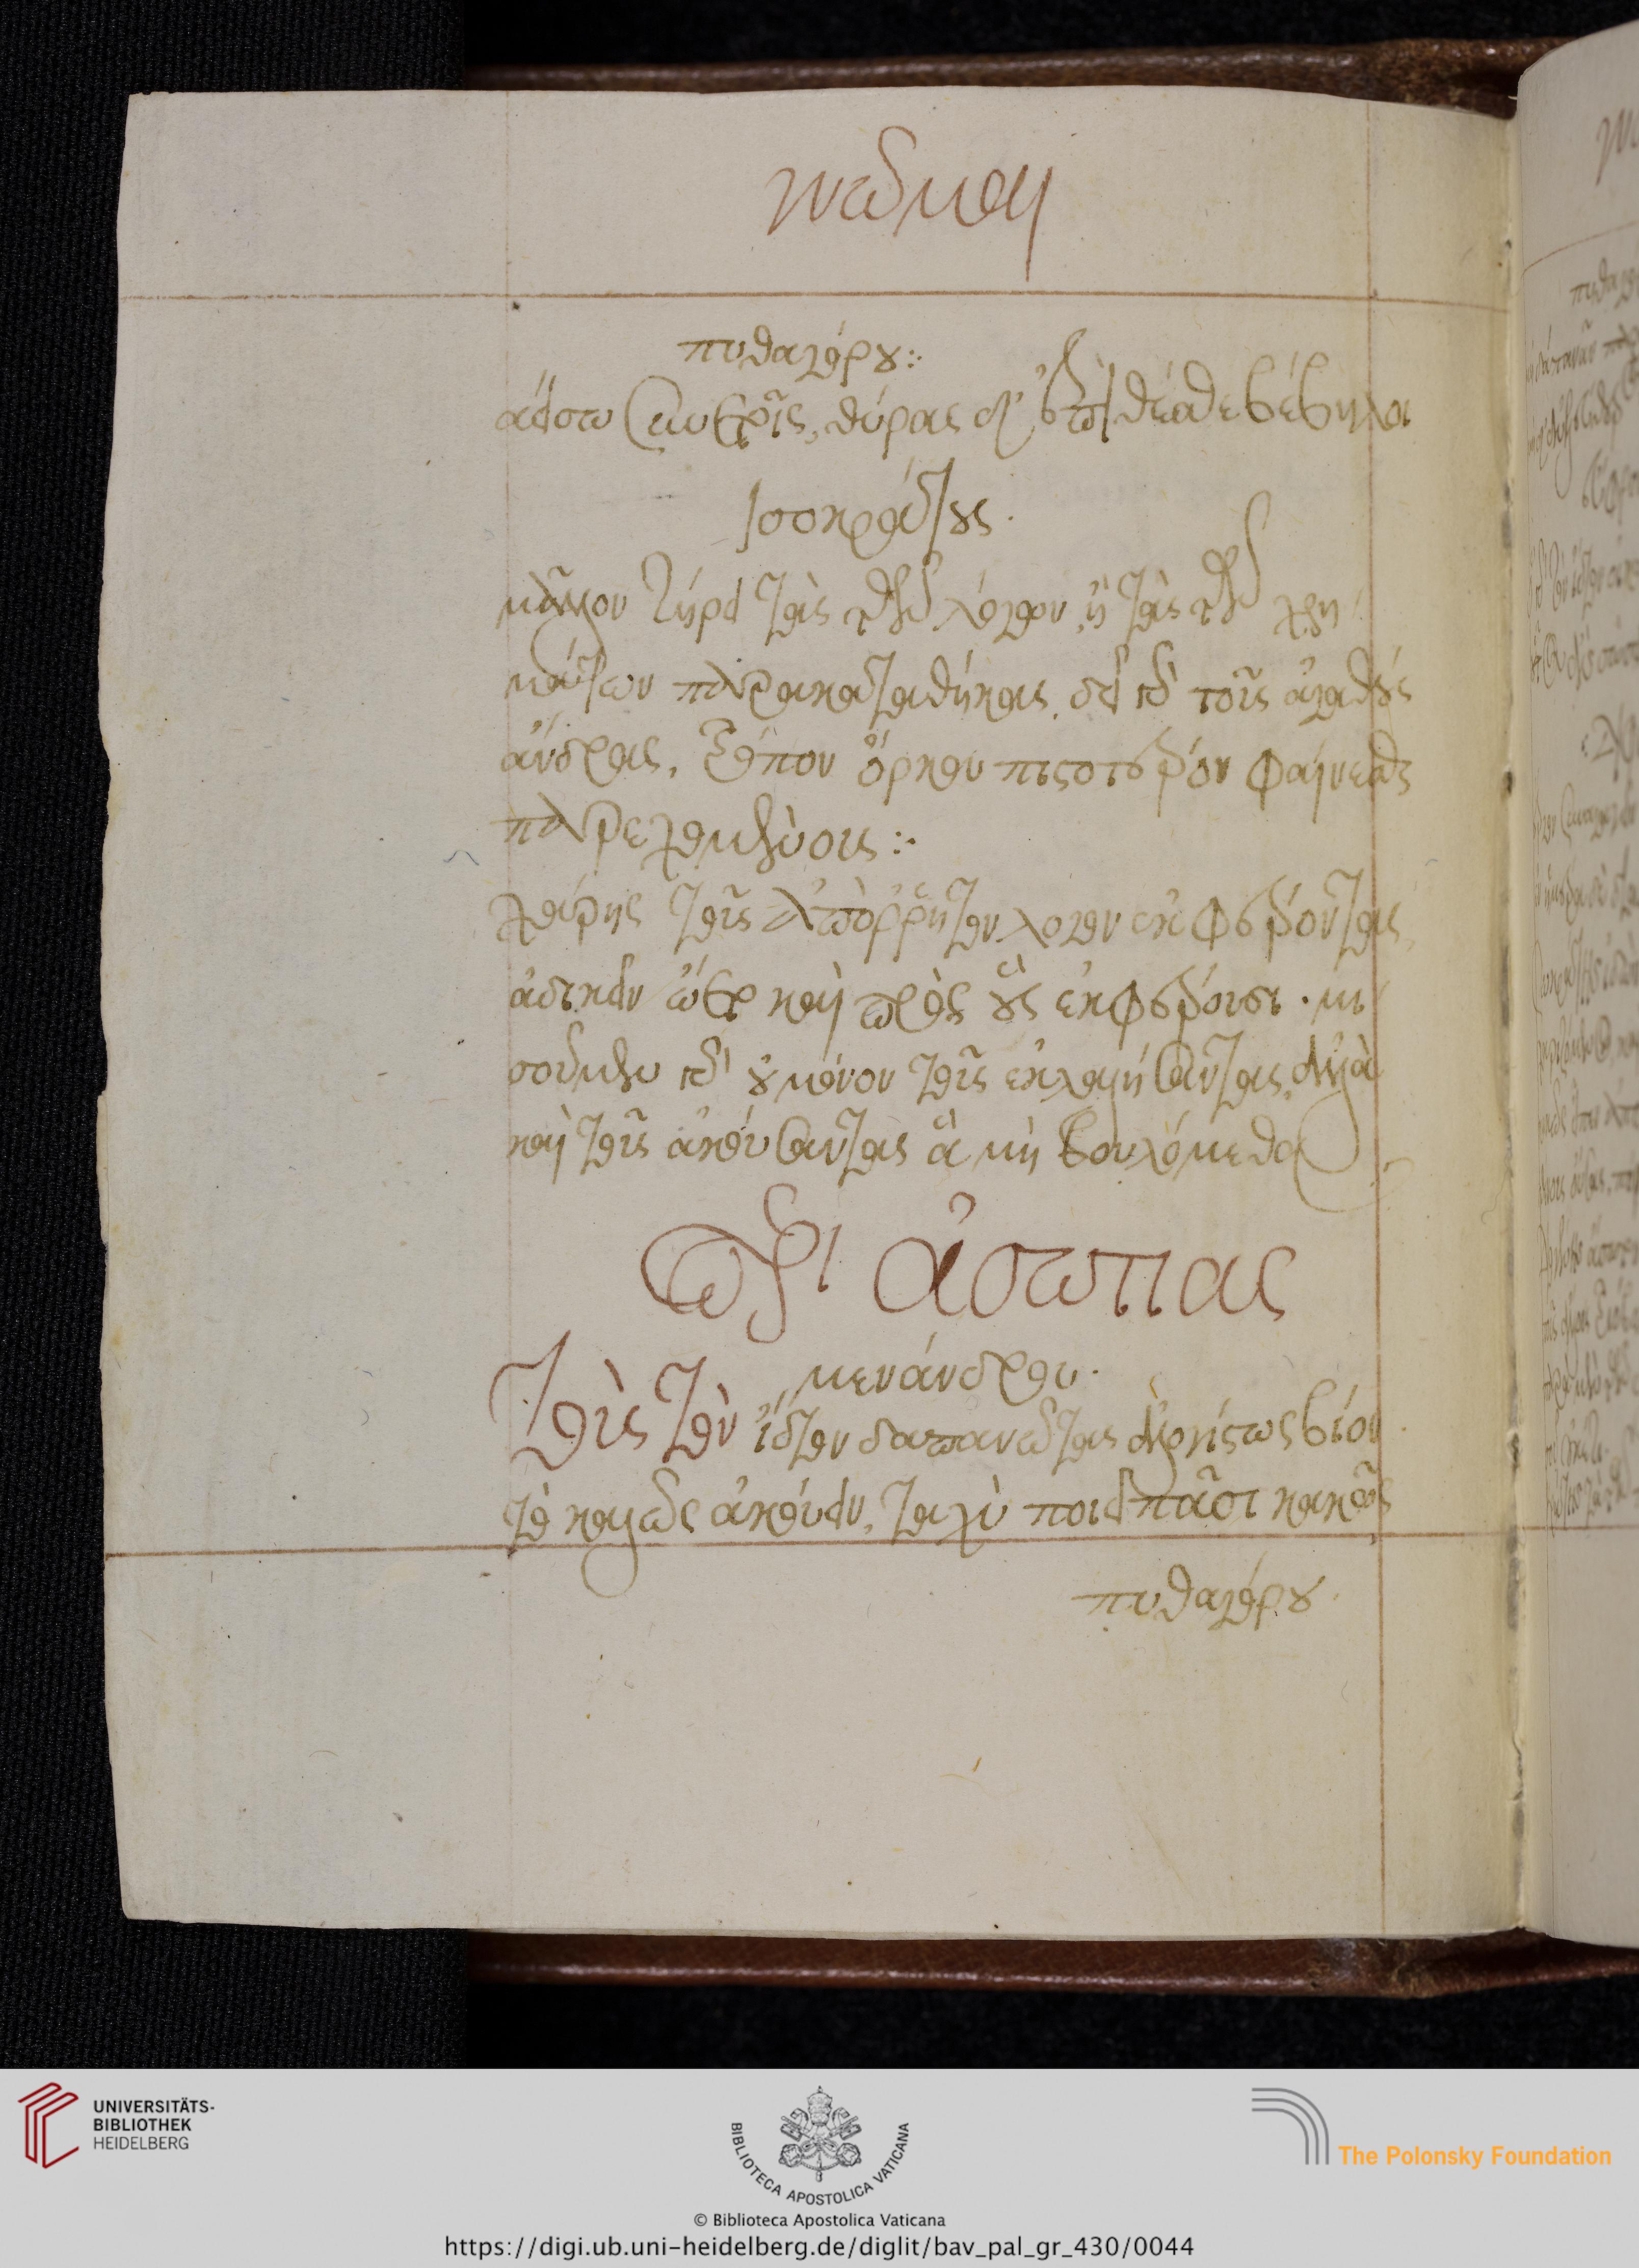 γνῶμαι
πυθαγόρου :·
ἀείσω ξυνετοῖς, θύρας δ' ἐπίθεσθε βέβηλοι
ἰσοκράτους.
μᾶλλον τήρει τὰς τῶν λόγων, ἢ τὰς τῶν χρη
μάτων παρακαταθήκας. δεῖ γὰρ τοὺς ἀγαθοὺς
ἄνδρας, τρόπον ὅρκου πιστότερον φαίνεσθαι
παρεχομένους :·
τοὺς ἀπόρρητον λόγον ἐκφέροντας,
ἀδικεῖν ὥσπερ καὶ πρὸς οὓς ἐκφέρουσι· μι
σοῦμεν γὰρ οὐ μόνον τοὺς ἐκλαλήσαντας, ἀλλὰ
καὶ τοὺς ἀκούσαντας ἃ μὴ βουλόμεθα
περὶ ἀσωτίας
μενάνδρου.
τοὺς τὸν ἴδιον δαπανῶντας ἀλογίστως βίον
τὸ καλῶς ἀκούειν, ταχὺ ποιεῖ πᾶσι κακῶς
πυθαγόρου.
UNIVERSITÄTS-
BIBLIOTHEK
HEIDELBERG
BIBLIOTECA APOSTOLICA VATICANA
The Polonsky Foundation
© Biblioteca Apostolica Vaticana
https://digi.ub.uni-heidelberg.de/diglit/bav_pal_gr_430/0044